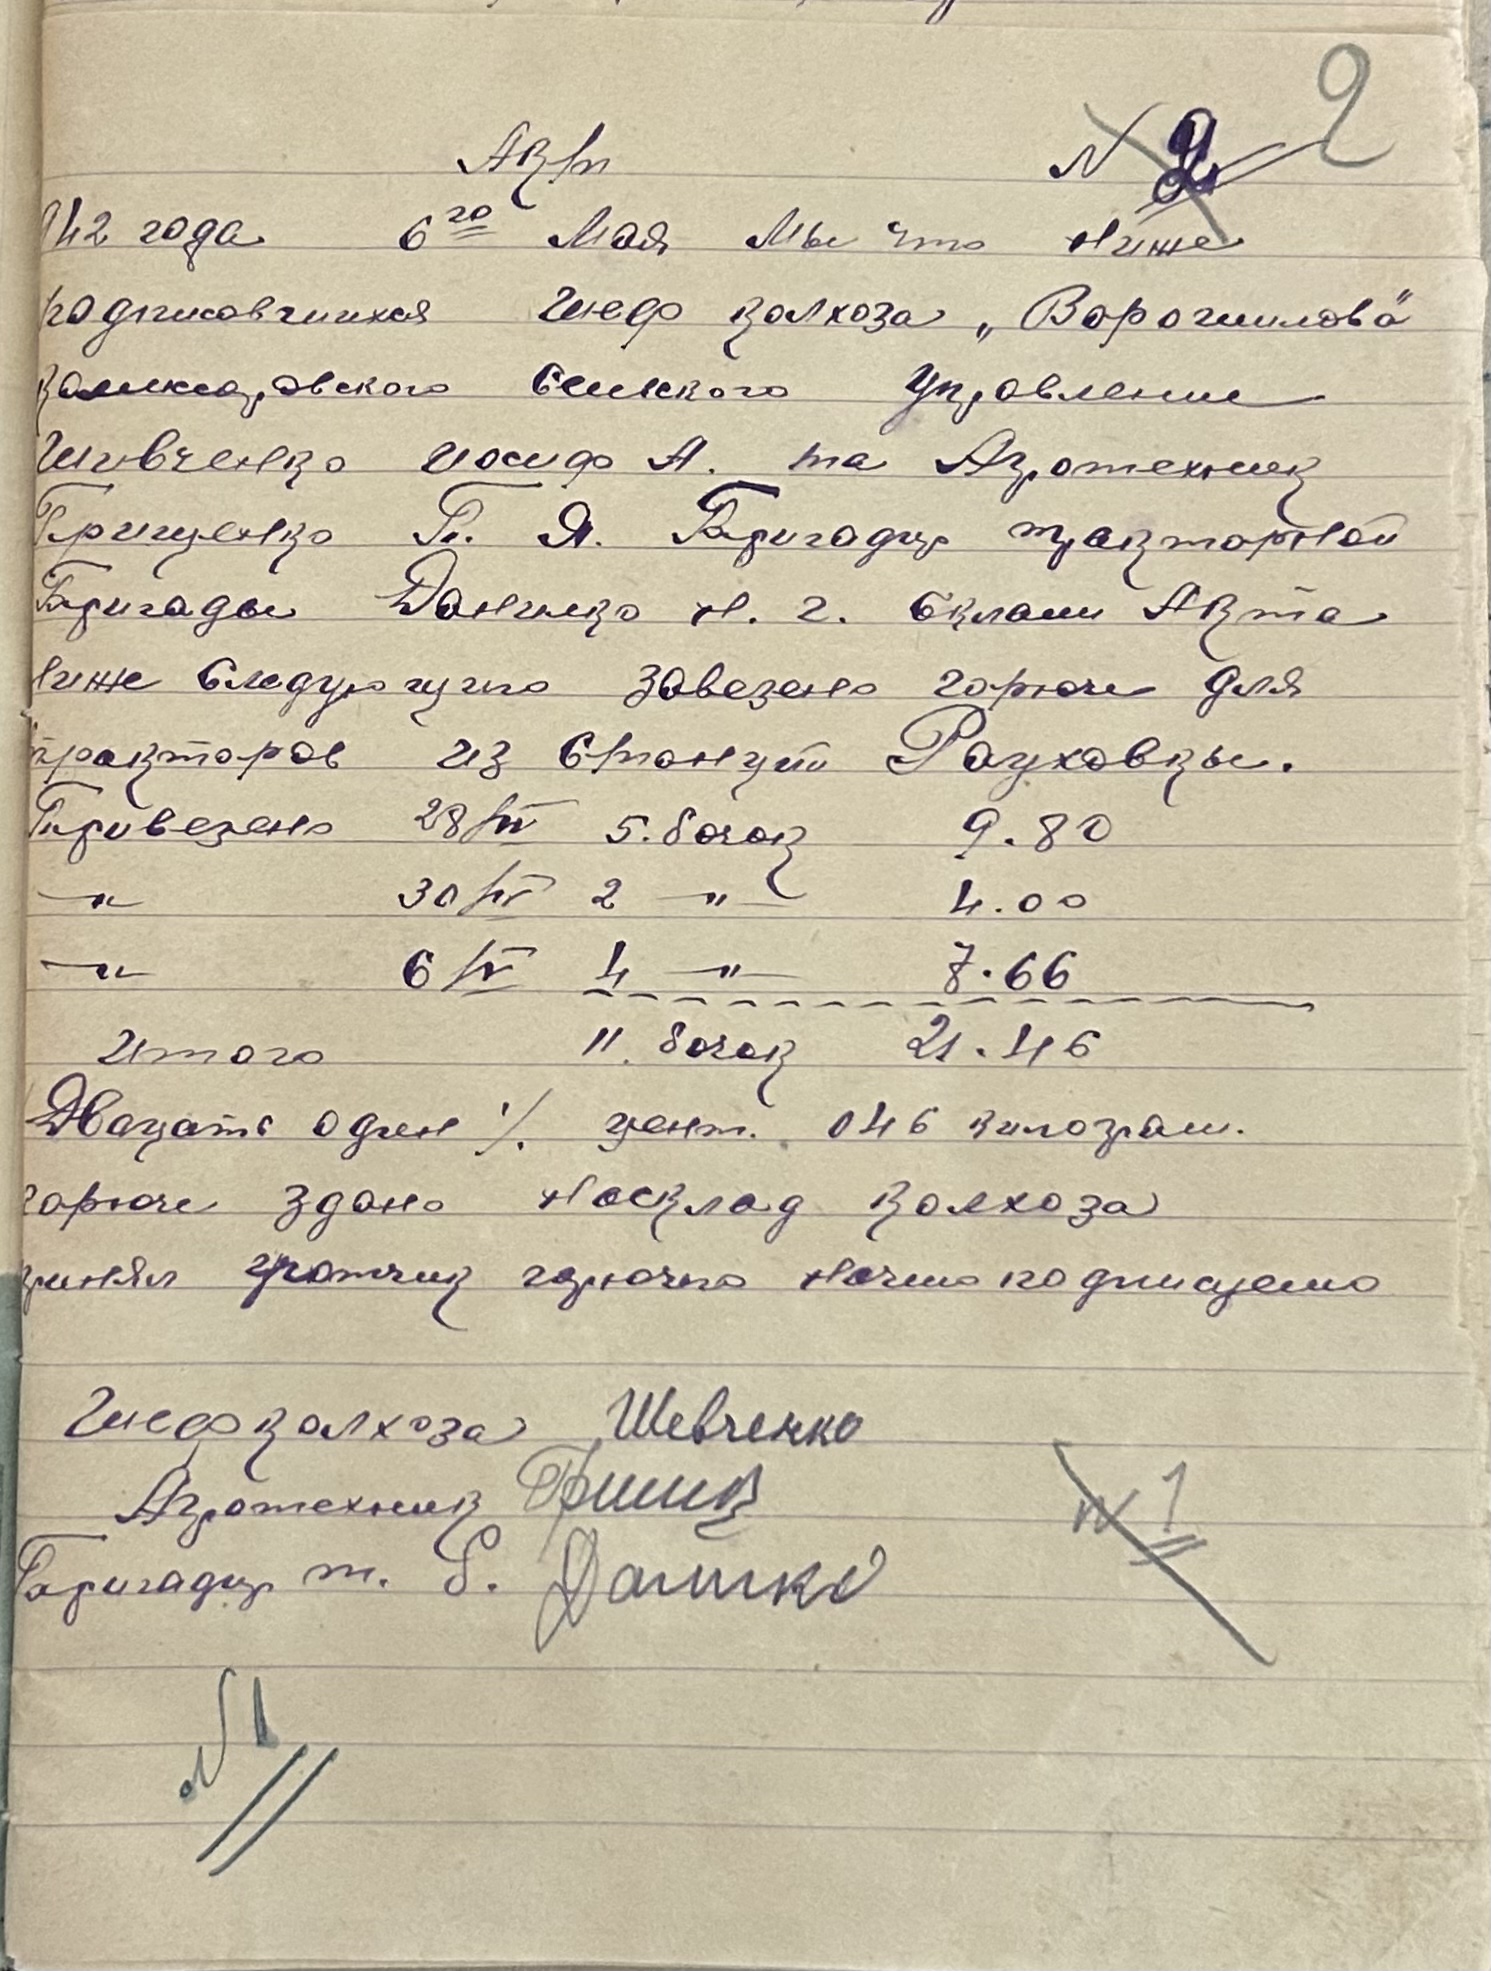 2
Акт № 2
942 года 6го Мая Мы что ниже
подписовчиихся Шеф колхоза „Ворошилова"
сельского управление
Шивченко иосиф А. та Агротехник
Грищенко П. Я. Бригадир тракторной
Бригады Данилко Н. Г. склали Акта
ниже следующого завезено горюче для
тракторов из станции Рауховкы.
Привезено 28/IV 5. бочок 9.80
—"— 30/IV 2 —"— 4.00
—"— 6/V 4 —"— 7.66
Итого 11. бочок 21.46
Двацать один ./. цент. 046 килограм.
горюче здано насклад колхоза
горючго начшо подписуемо
Шеф колхоза Шевченко
Агротехник Грищ
№ 1
Бригадир т. б. Данилко
№ 1